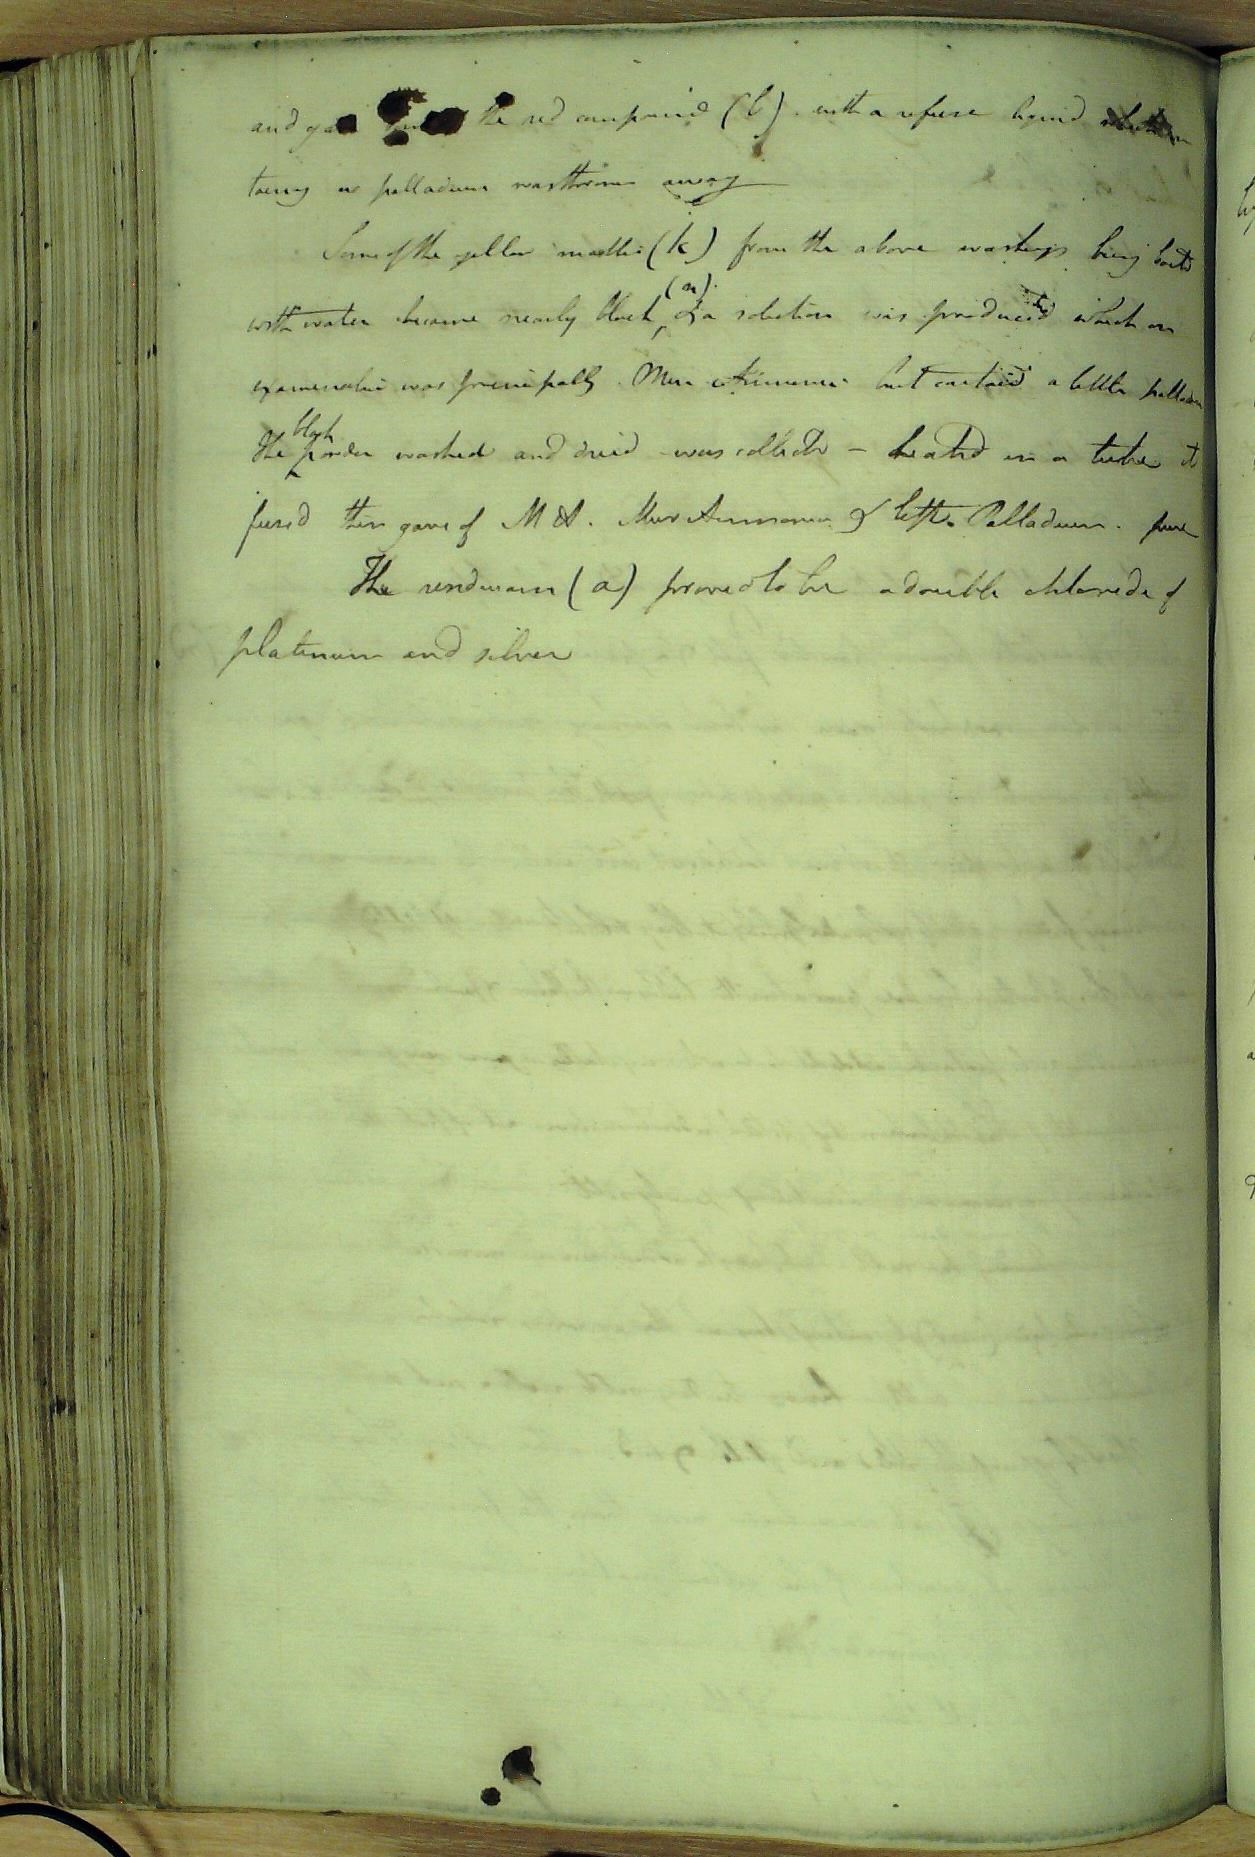 and gave the red compound (b). with a refuse liquid
taining no palladium was thrown away
Some of the yellow matter (k) from the above washings being boild
with water became nearly black (n) & a solution was produced which on
examination was principally Mur Ammonia but containd a little palladium
The black powder washed and dried was collected – heated in a tube it
fused then gave of M A. Mur Ammonia & left Palladium. pure
The residuum (a) proved to be a double chloride of
platinum and silver